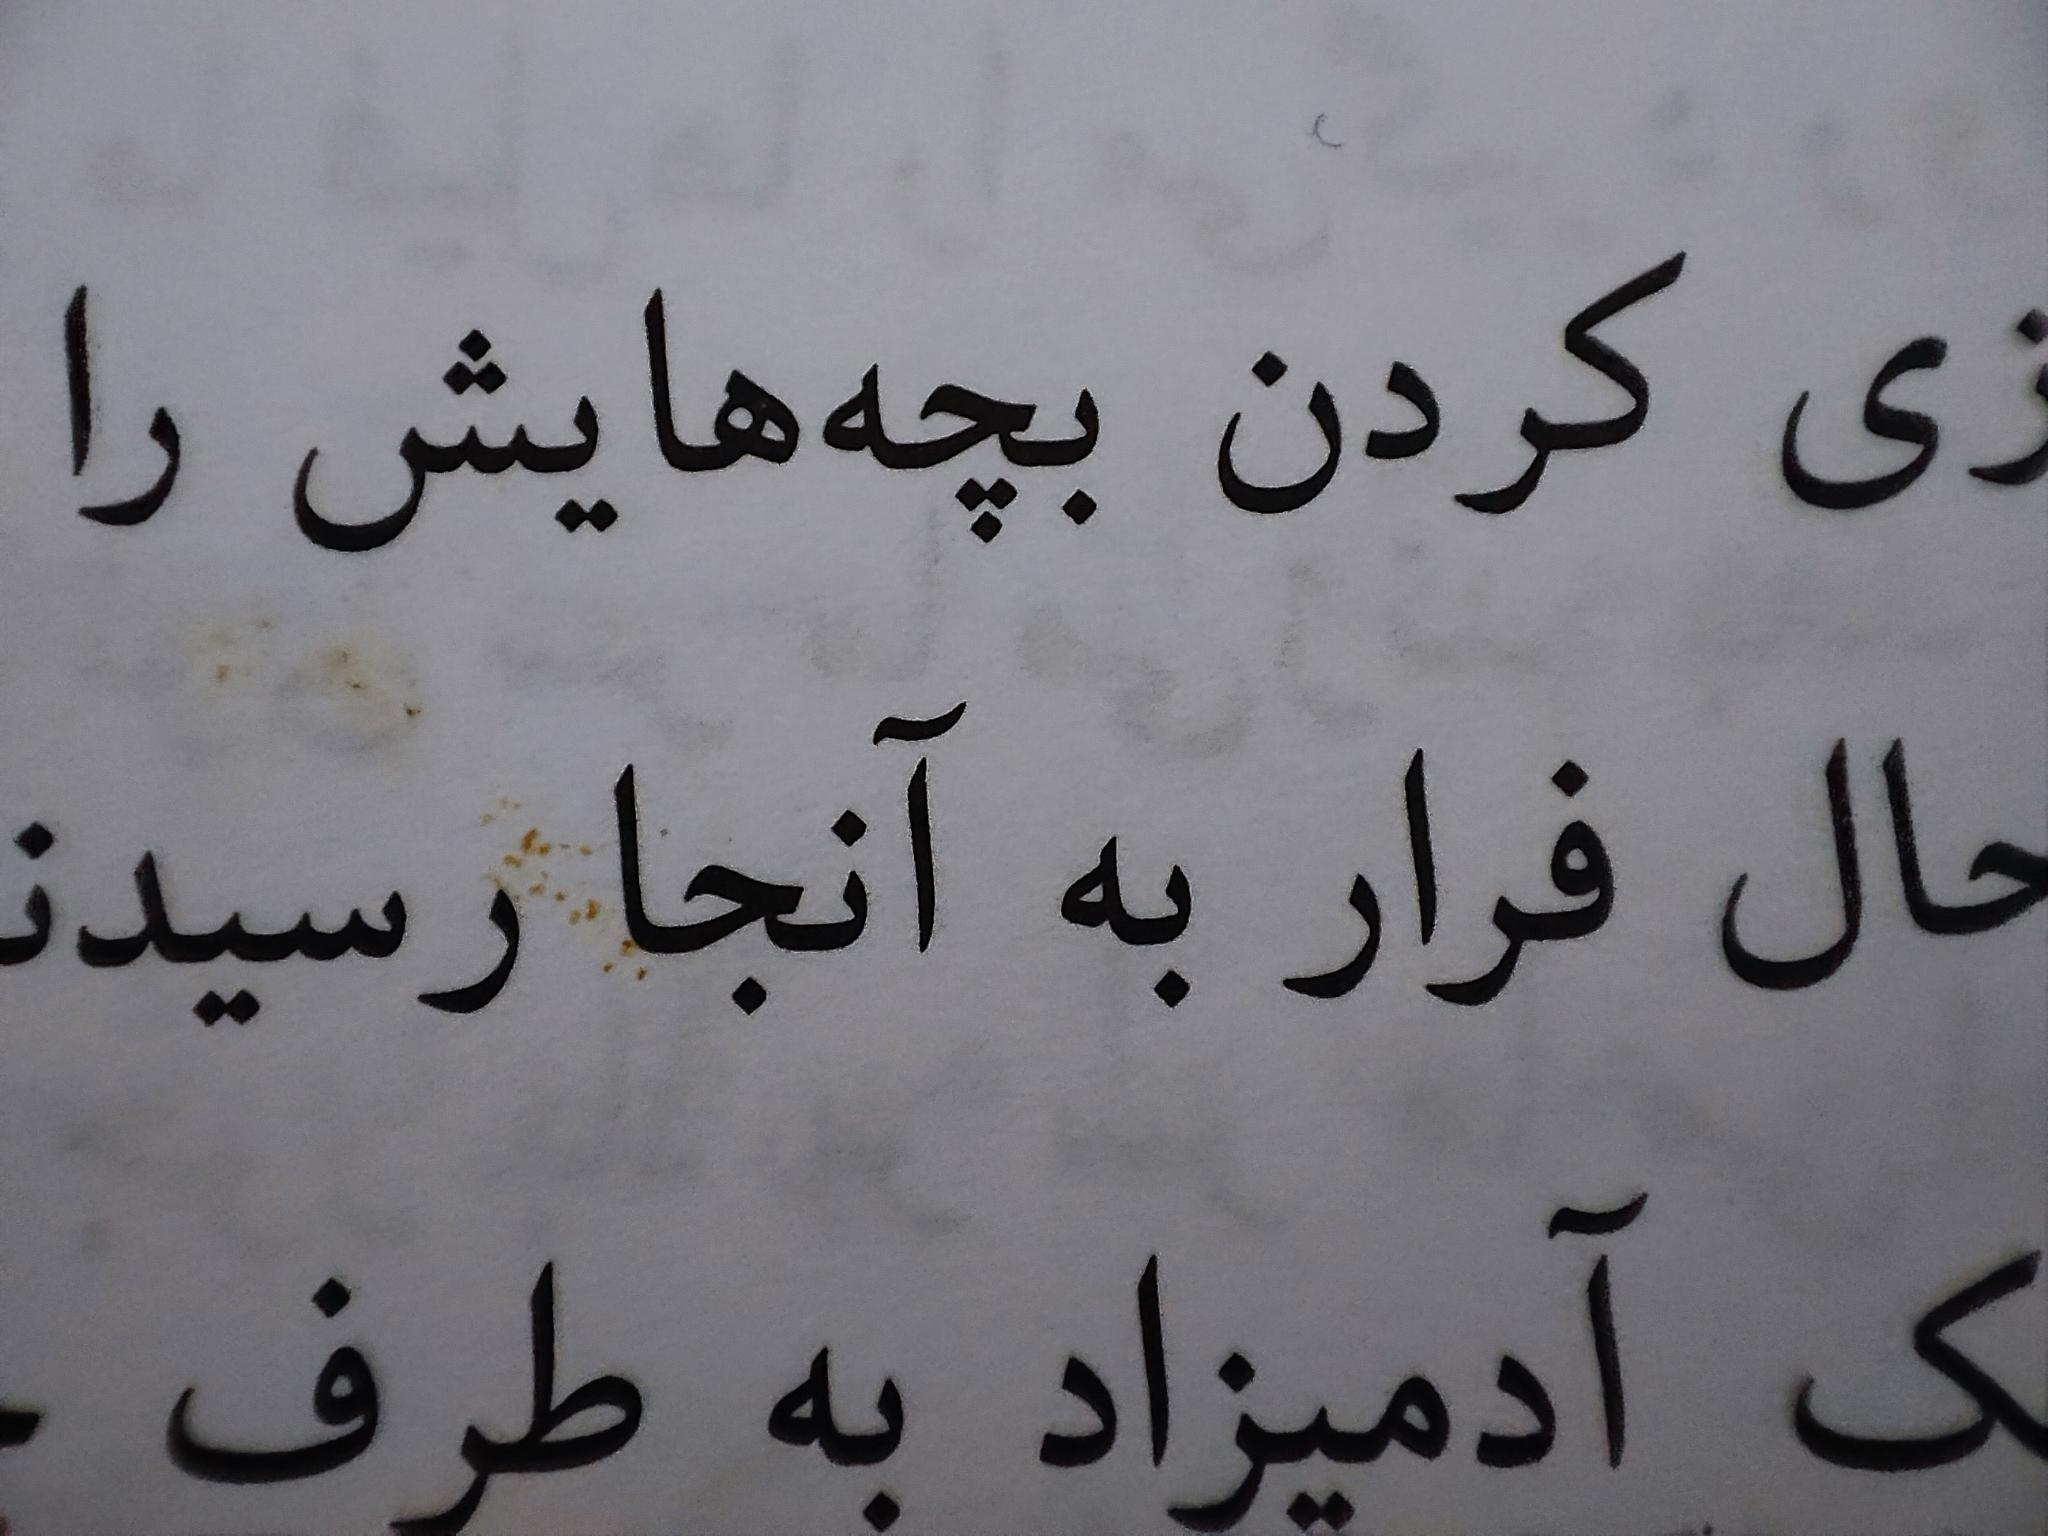 زی کردن بچه‌هایش را
حال فرار به آنجا رسیدند
ک آدمیزاد به طرف